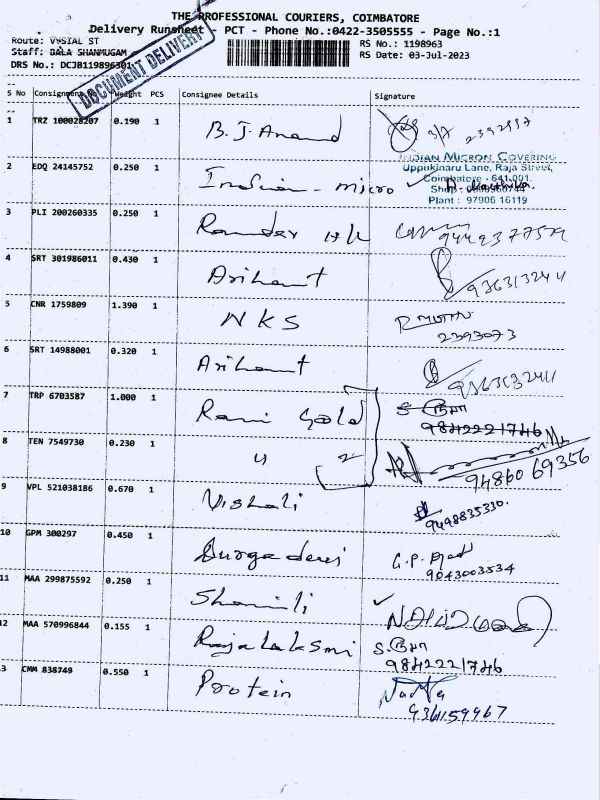 THE PROFESSIONAL COURIERS, COIMBATORE
Delivery Runsheet - PCT - Phone No.:0422-3505555 - Page No.:1
Route: VYSIAL ST
RS No.: 1198963
Staff: BALA SHANMUGAM
RS Date: 03-Jul-2023
DRS No.: DCJB119896301
DOCUMENT DELIVERY
S No Consignment No Weight PCS Consignee Details Signature
1 TRZ 100028207 0.190 1 B.J.Anand 3/7 2392937
INDIAN MICRON COVERING
Uppukinaru Lane, Raja Street,
Coimbatore - 641 001.
2 EDQ 24145752 0.250 1 Indian - micro
Shop :
Plant : 97906 16119
3 PLI 200260335 0.250 1
4 SRT 301986011 0.430 1 Arihant 9363132411
5 CNR 1759809 1.390 1 NKS
2393073
6 SRT 14988001 0.320 1 Arihant
7 TRP 6703587 1.000 1 Rani Gold
9842221746
8 TEN 7549730 0.230 1 " 2
94860 69356
9 VPL 521038186 0.670 1 Vishali
9498835330.
10 GPM 300297 0.450 1 Durga devi
9043003534
11 MAA 299875592 0.250 1
12 MAA 570996844 0.155 1 Rajalaksmi
9842221746
3 CMM 838749 0.550 1 Protein
9361159967